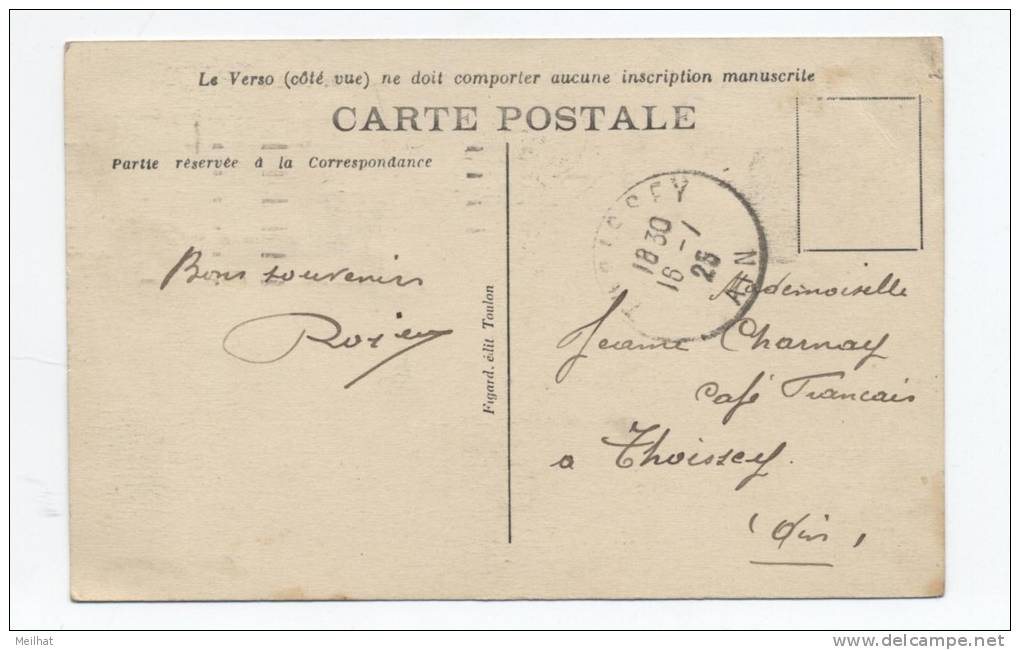 Le Verso (côté vue) ne doit comporter aucune inscription manuscrite
CARTE POSTALE
Partie réservée à la Correspondance
Bons souvenirs
Figard. édit Toulon
THOISSEY
18 30
16 - 1
25
AIN
Mademoiselle
Jeanne Charnay
Café Francais
a Thoissey.
(Ain)
Meilhat
www.delcampe.net